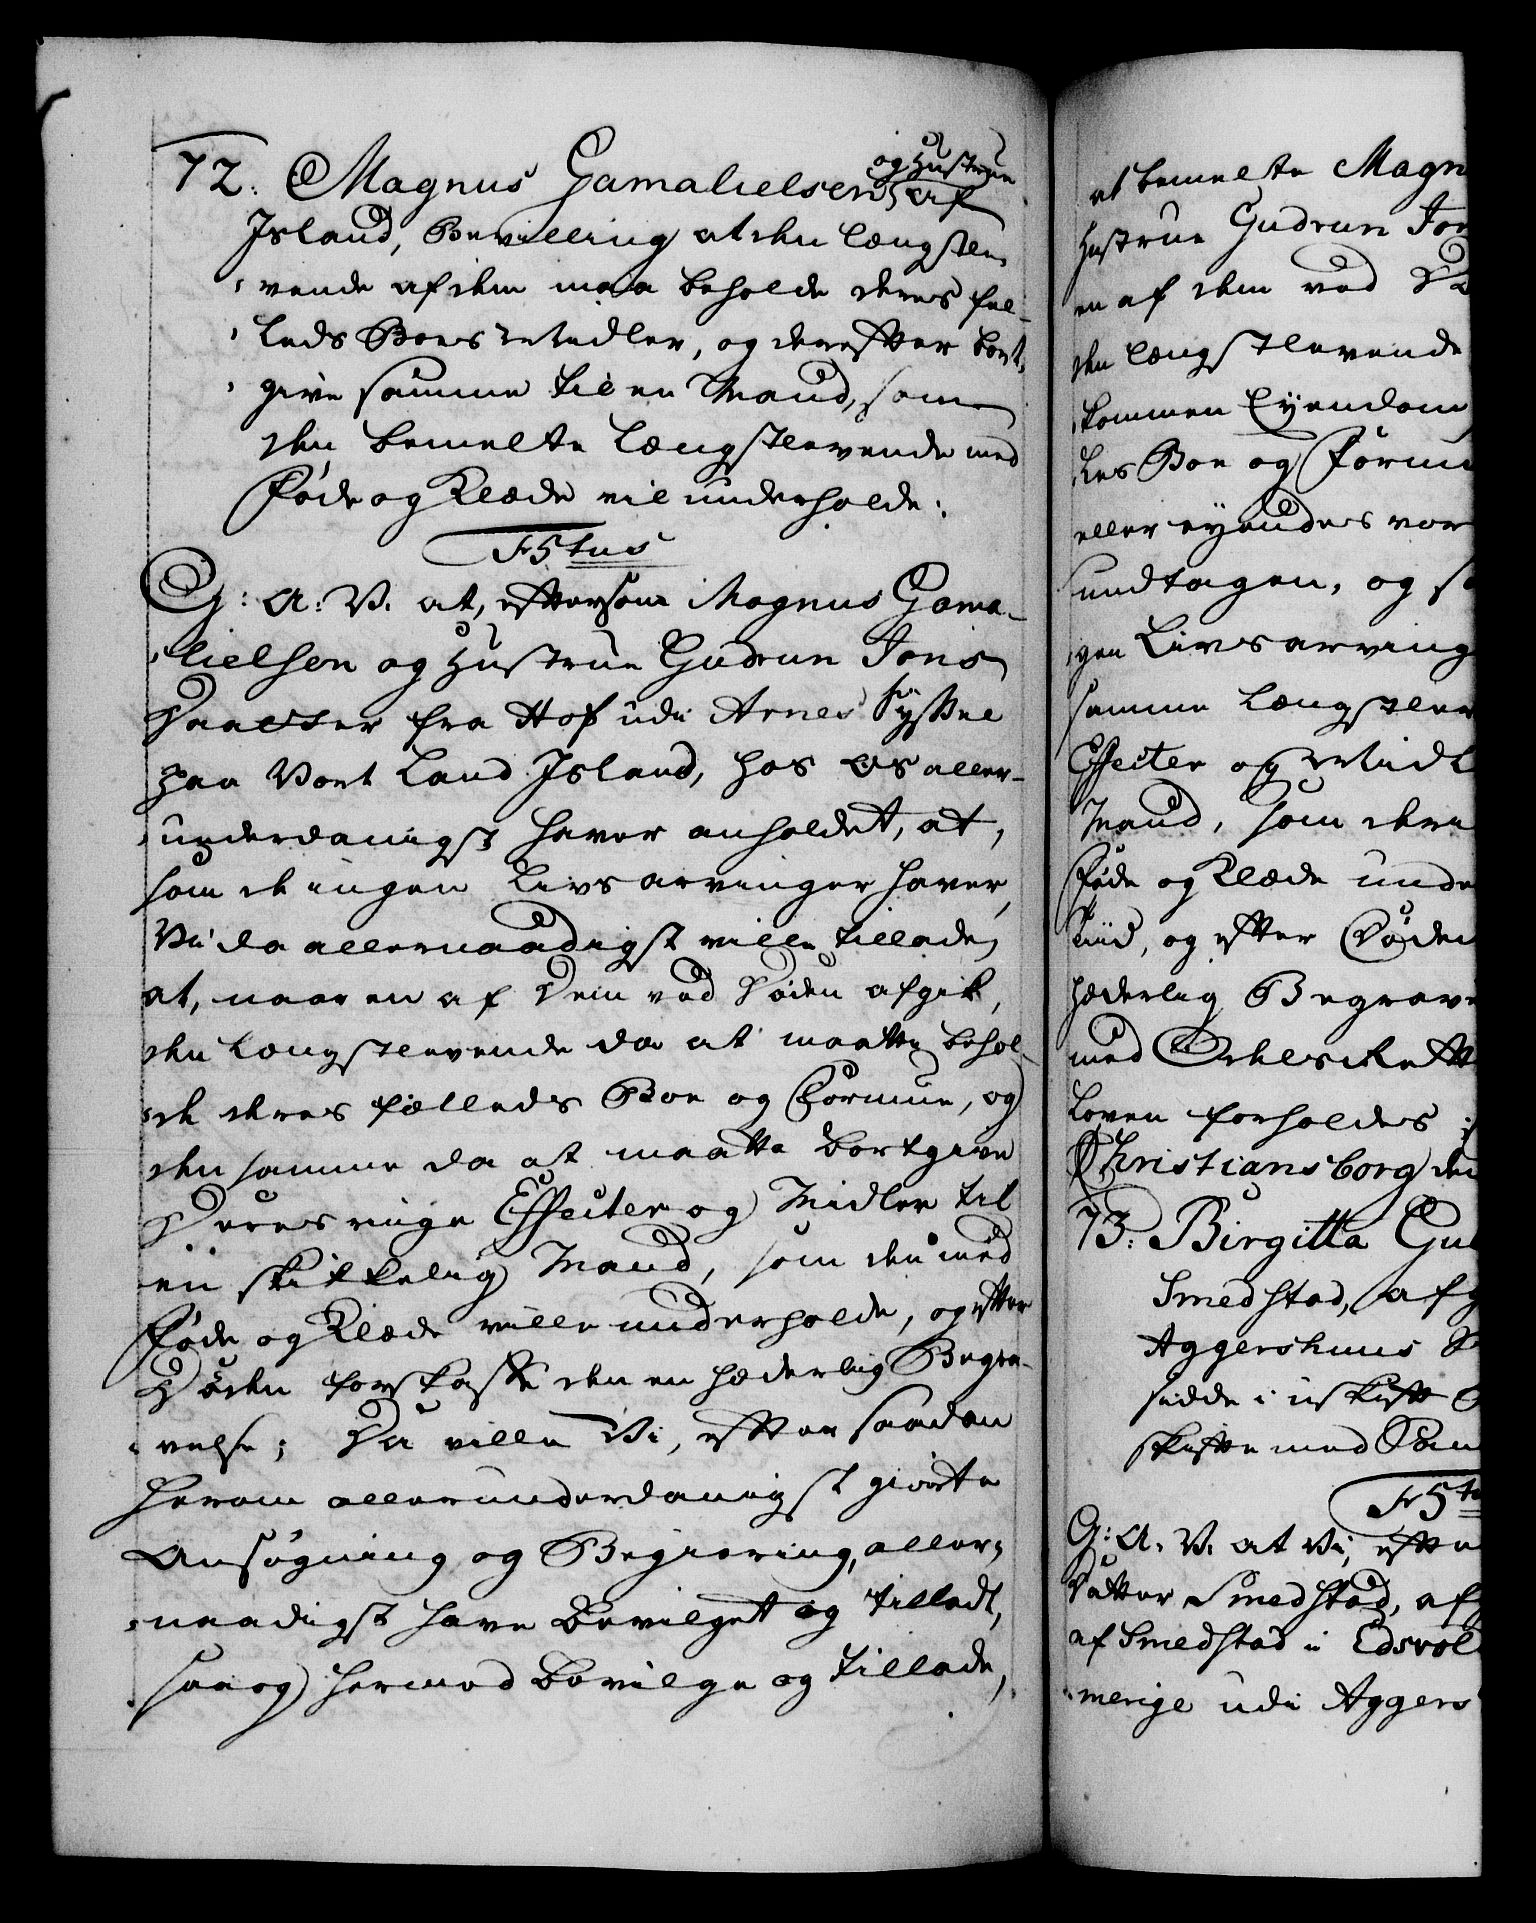 72. Magnus Gamalielsen og Hustrue af
Island, Bevilling at den længstle-
vende af dem maa beholde deres fæl-
leds Boes Midler, og derefter bort-
give samme til en Mand, som
den bemelte Længstlevende med
Føde og Klæde vil underholde.
Fr 5tus
G: A: V. at, eftersom Magnus Gama-
lielsen og Hustrue Gudrun Jons
Daatter fra Hof udi Arnes Syssel
paa Vort Land Island, hos Os aller-
underdanigst haver anholdet, at,
som de ingen Livs arvinger haver,
Vi da allernaadigst ville tillade,
at, naar en af Dem ved Døden afgik,
den Længstlevende da at maatte behol-
de deres fælleds Boe og Formue, og
den samme da at maatte bortgive
Deres ringe Effecter og Midler til
en skikkelig Mand, som den med
Føde og Klæde ville underholde, og efter
Døden forskaffe den en hæderlig Begra-
velse; Da ville Vi, efter saadan
herom allerunderdanigst giorte
Ansøgning og Begiering, aller-
naadigst have bevilget og tilladt,
saa og hermed bevilge og tillade,
at bemelte Magn
Hustrue Gudrun Jon
en af dem ved D
den længstlevende
kommen Eyendom
des Boe og Formu
eller eyendes vor
undtagen, og s
gen Livs arving
samme Længstlev
Effecter og Midl
Mand, som den
Føde og Klæde unde
tiid, og efter Døden
hæderlig Begrave
med
Loven forholdes
Christiansborg den
73. Birgitta Gu
Smedstad, afg
Aggershuus S
sidde i uskift
skifte med Sam
Fr 5t
G: A. V. at Vi, efte
Datter Smedstad, af
af Smedstad i Edsvol
merige udi Aggers